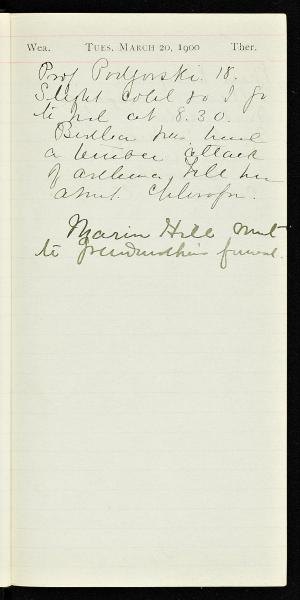 Wea. Tues, March 20, 1900 Ther.
Prof Podgorski. 18.
Slight cold so I go
to bed at 8.30.
has had
a terrible attack
of asthma, tell him
about Chlorofm.
Marin Hill went
to Grandmother's funeral.